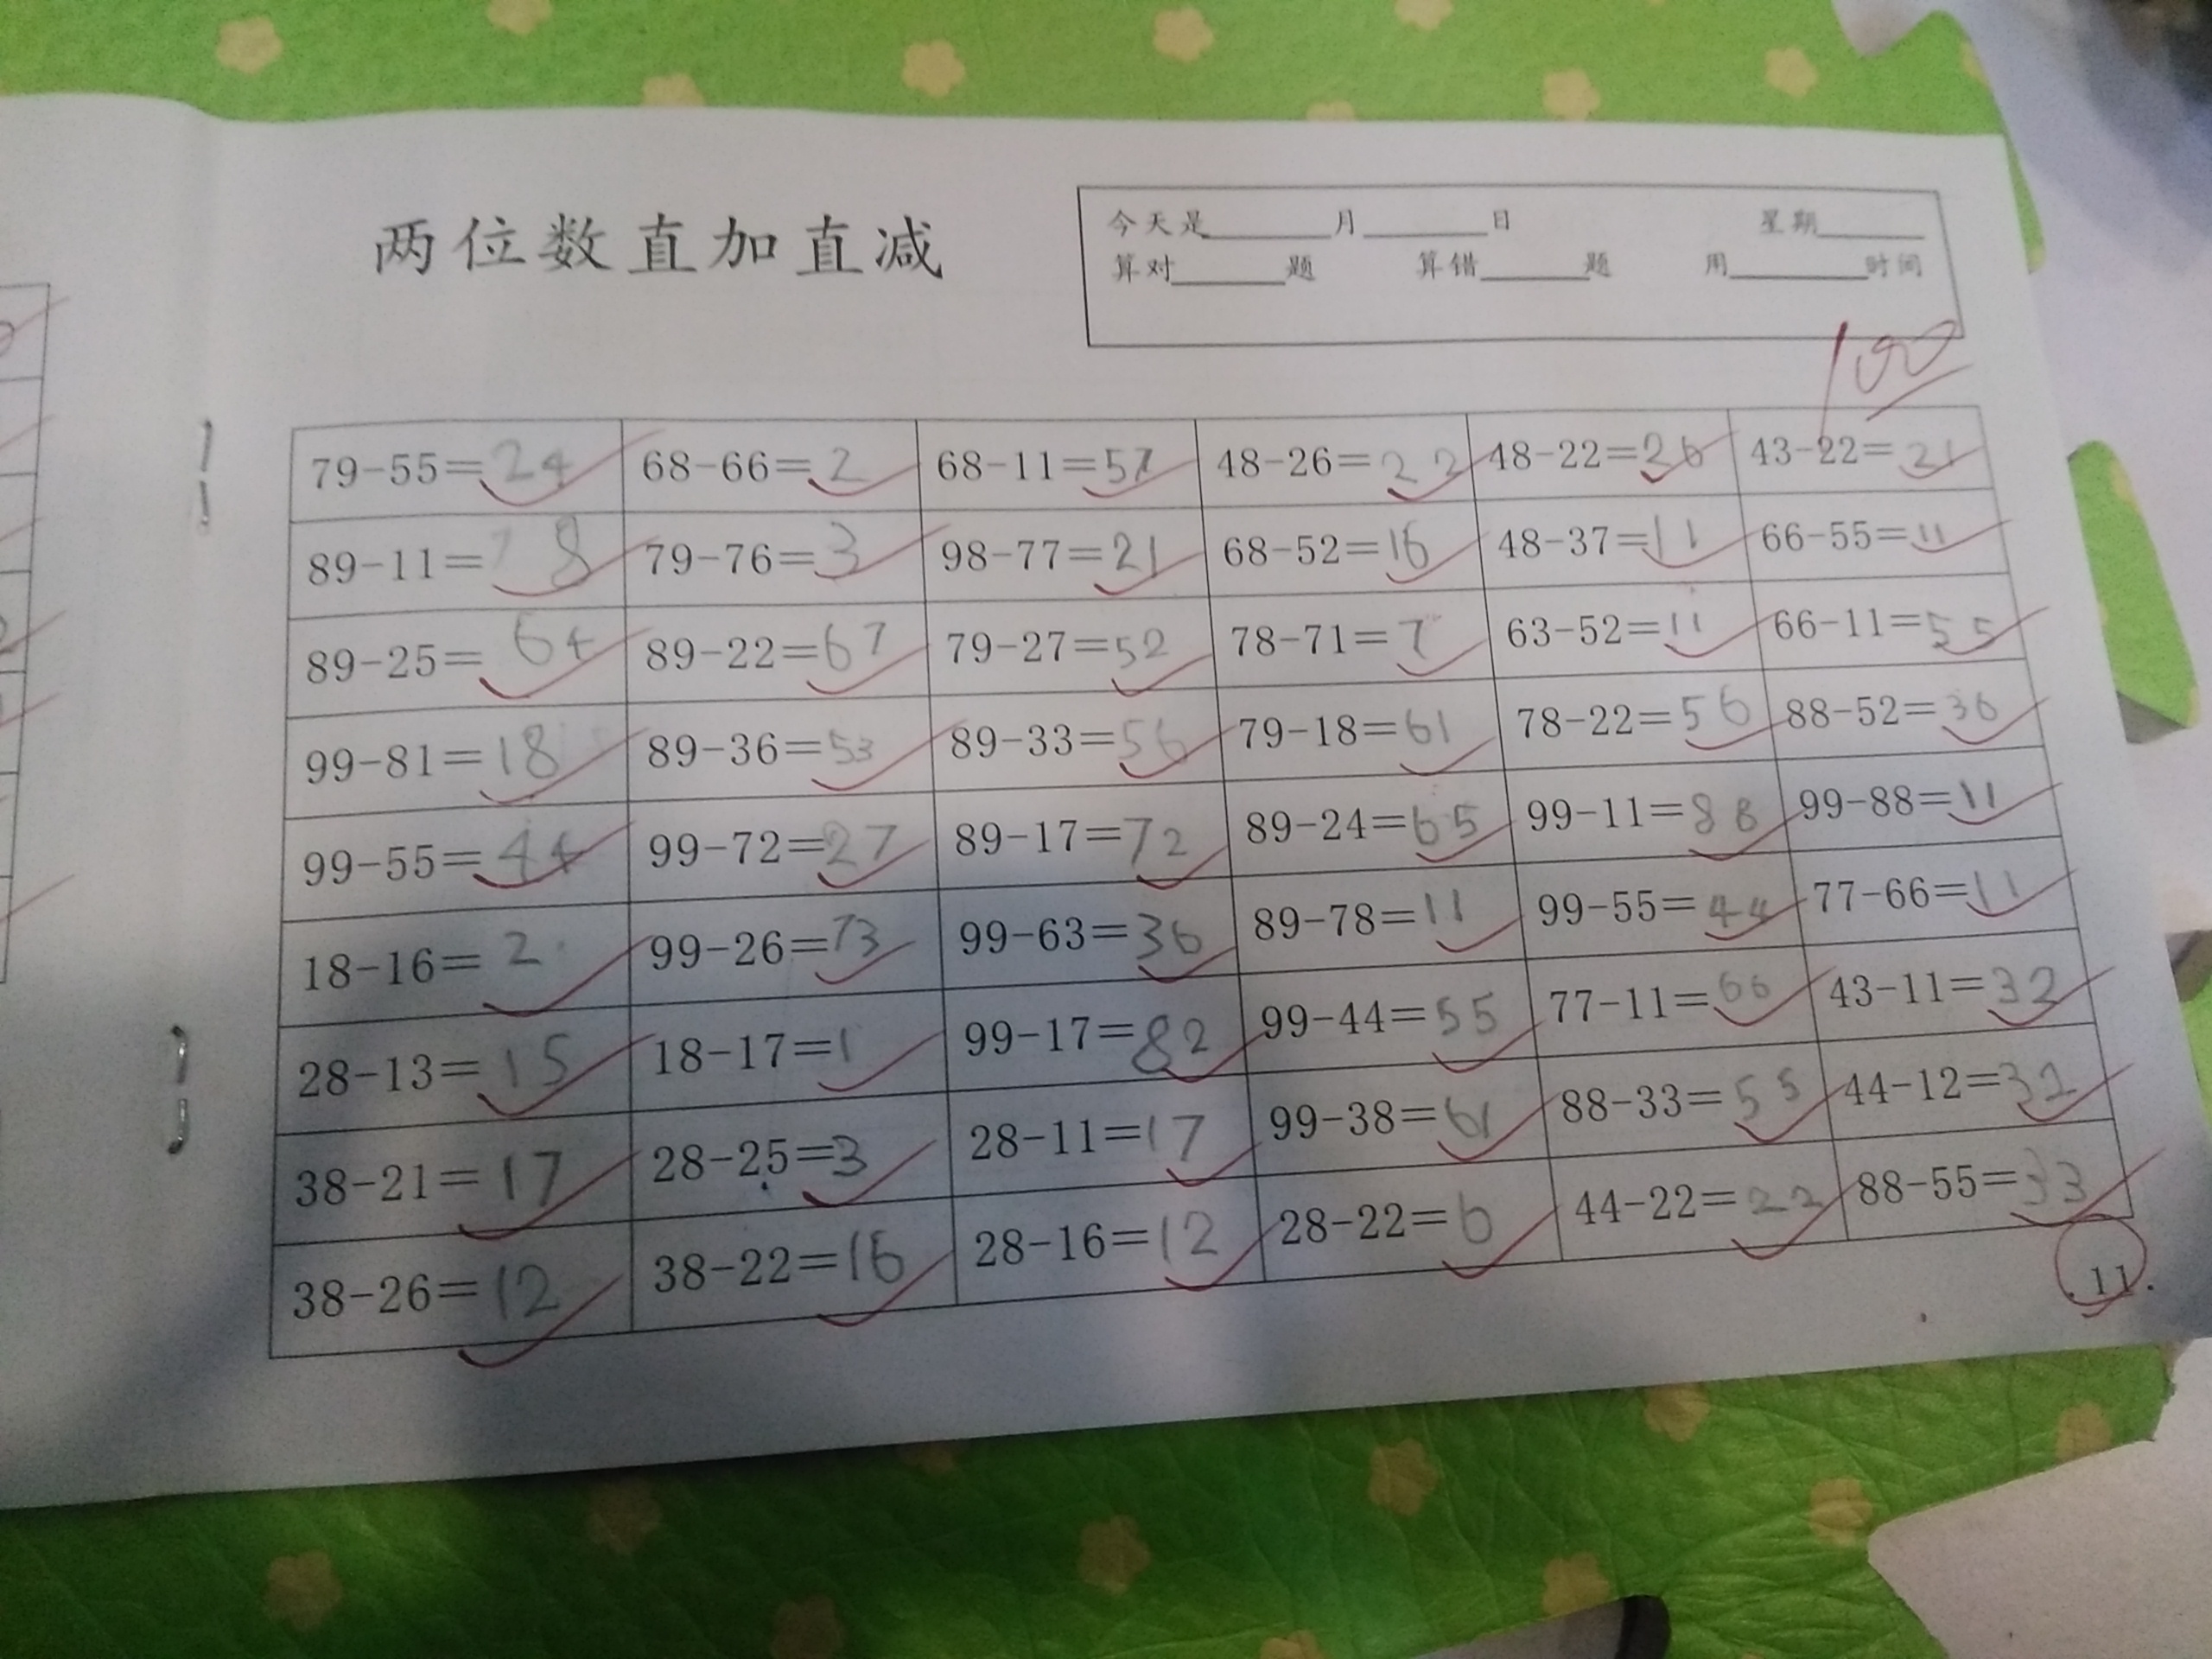 两位数直加直减
今天是______月______日 星期______
算对______题 算错______题 用______时间
100
79-55=24 68-66=2 68-11=57 48-26=22 48-22=26 43-22=21
89-11=78 79-76=3 98-77=21 68-52=16 48-37=11 66-55=11
89-25=64 89-22=67 79-27=52 78-71=7 63-52=11 66-11=55
99-81=18 89-36=53 89-33=56 79-18=61 78-22=56 88-52=36
99-55=44 99-72=27 89-17=72 89-24=65 99-11=88 99-88=11
18-16=2 99-26=73 99-63=36 89-78=11 99-55=44 77-66=11
28-13=15 18-17=1 99-17=82 99-44=55 77-11=66 43-11=32
38-21=17 28-25=3 28-11=17 99-38=61 88-33=55 44-12=32
38-26=12 38-22=16 28-16=12 28-22=6 44-22=22 88-55=33
.11.